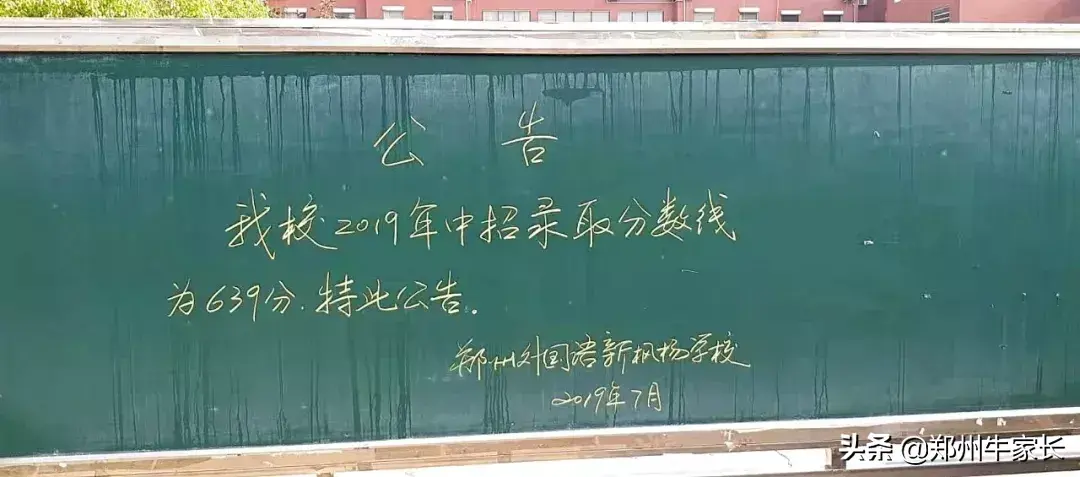 公 告
我校2019年中招录取分数线
为639分.特此公告。
郑州外国语新枫杨学校
2019年7月
头条 @郑州牛家长